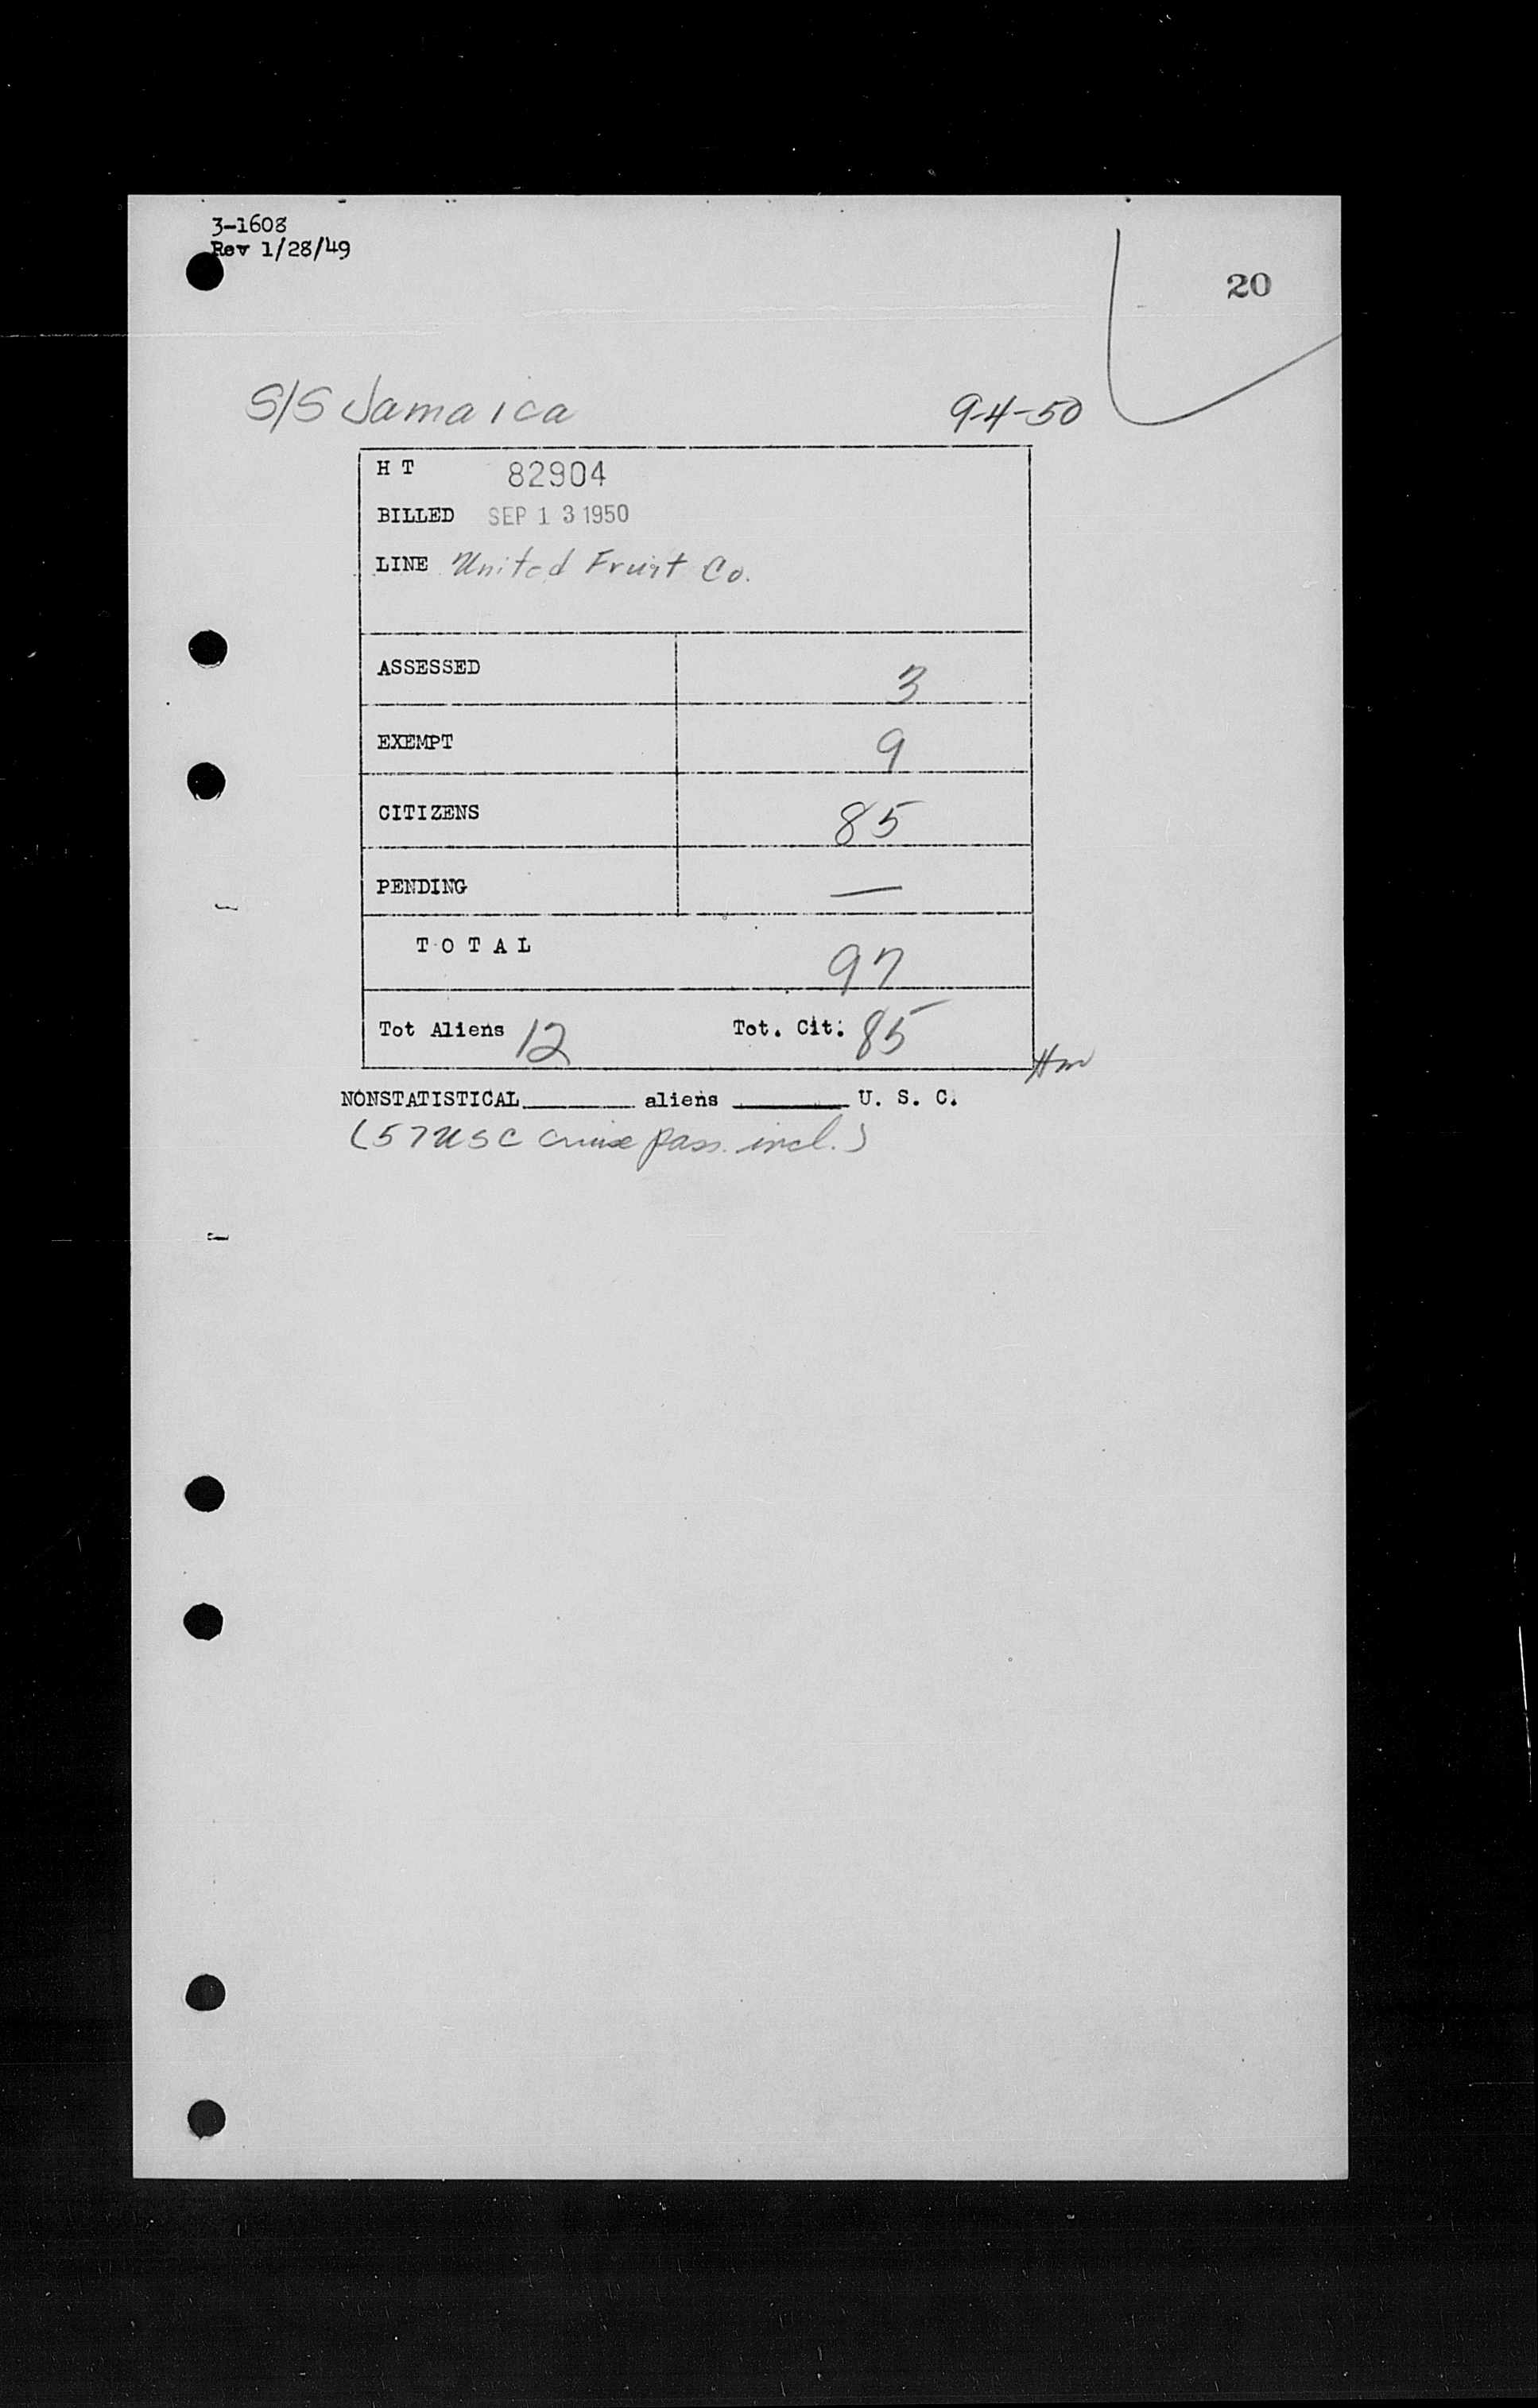 3-1608
Rev 1/28/49
20
S/S Jamaica 9-4-50
H T 82904
BILLED SEP 13 1950
LINE United Fruit Co.
ASSESSED 3
EXEMPT 9
CITIZENS 85
PENDING —
TOTAL 97
Tot Aliens 12 Tot. Cit. 85
Hm
NONSTATISTICAL_______ aliens _______ U. S. C.
(57 USC cruise pass. incl.)